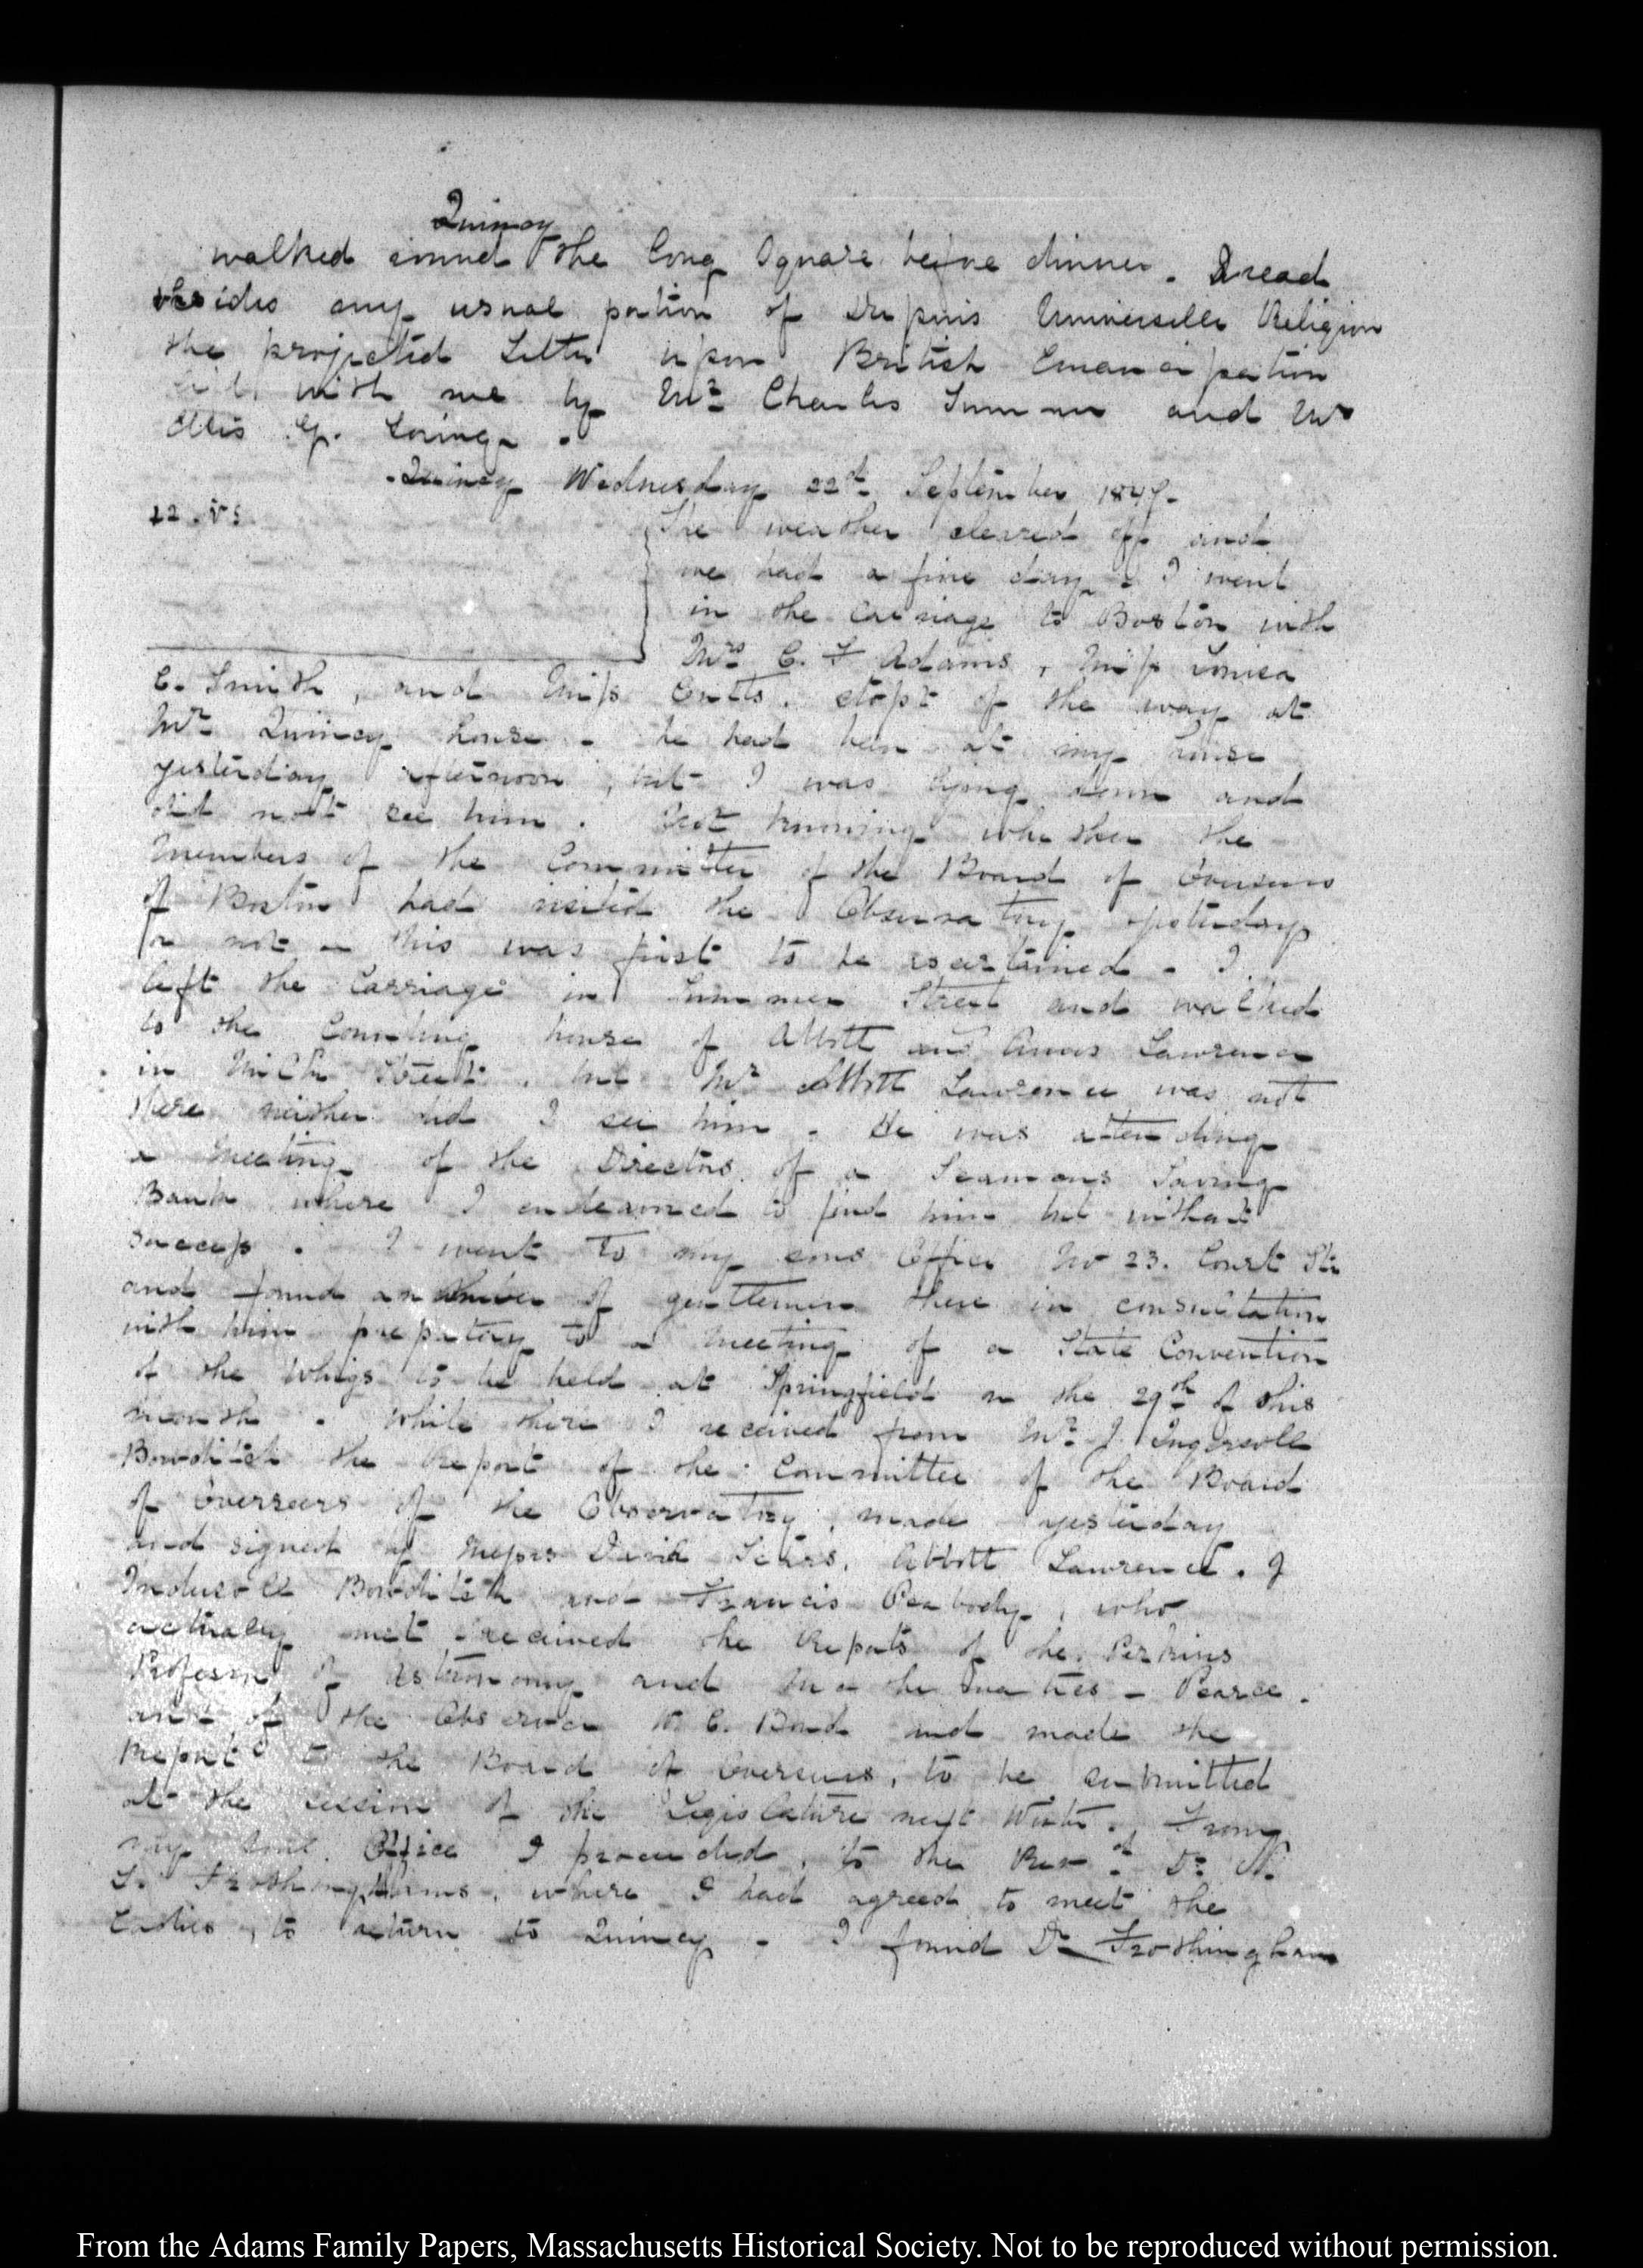 Quincy
walked round the long Square before dinner. I read
besides my usual portion of Dupuis Universelle Religion
the projected Letter upon British Emancipation
left with me by Mr Charles Sumner and Mr
Ellis G. Loring.
Quincy Wednesday 22d. September 1847.
The weather cleared off and
we had a fine day. I went
in the carriage to Boston with
Mrs C. F Adams, Miss Louisa
C. Smith, and Miss Cutts. stopt by the way at
Mr Quincy house - he had been at my house
yesterday afternoon, but I was lying down and
did not see him. Not knowing whether the
members of the Committee of the Board of Overseers
of Boston had visited the Observatory yesterday
or not - this was first to be ascertained - I
left the Carriage in Summer Street and walked
to the Counting house of Abbott and Amos Lawrence
in Milk Street. but Mr Abbott Lawrence was not
there neither did I see him. He was attending
a meeting of the Directors of a Seamans Saving
Bank where I endeavored to find him but without
success. I went to my sons Office No 23. Court Str
and found a number of gentlemen there in consultation
with him prepatory to a meeting of a State Convention
of the Whigs to be held at Springfield on the 29th of this
month. While there I received from Mr J. Ingersoll
Bowditch the Report of the Committee of the Board
of Overseers of the Observatory, made yesterday
and signed by Messrs David Sears, Abbott Lawrence. J
Indersoll Bowditch and Francis Peabody, who
actually met received the Reports of the Perkins
Professor of Astronomy and Mathematics - Pearce.
and of the Observer W. C. Bond and made the
Report to the Board of Overseers, to be submitted
at the session of the Legislature next Winter. From
my sons Office I proceeded, to the Revd. Dr. N.
L. Frothinghams, where I had agreed to meet the
Ladies, to return to Quincy - I found Dr Frothingham
From the Adams Family Papers, Massachusetts Historical Society. Not to be reproduced without permission.